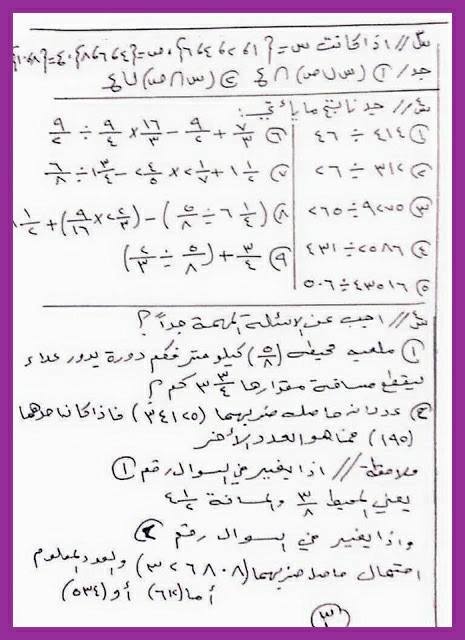 س// اذا كانت س={١، ٢، ٤، ٦}، ص={٤، ٦، ٨}، ع={٨، ١٠}
جد/ ① (س∪ص)∩ع ② (س∩ص)∪ع
س// جد ناتج ما يأتي:
① ٤١٤ ÷ ٤٦
② ٣١٢ ÷ ٢٦
③ ٩٢٧٥ ÷ ٢٦٥
④ ٢٥٨٦ ÷ ٤٣١
⑤ ٤٣٥١٦ ÷ ٥٠٦
⑥ ٧/٣ + ٩/٢ − ١٦/٣ × ٩/٤ ÷ ٩/٢
⑦ ١ ١/٢ + ٢ ١/٧ × ٢ ٤/٥ − ١ ٣/٤ ÷ ٦/٨
⑧ (٦ ١/٤ ÷ ٥/٨) − (٢ ٢/٣ × ٩/١٦) + ١/٢
⑨ ٣/٤ + (٥/٨ ÷ ٢/٣)
س// اجب عن الاسئلة المهمة جداً؟
① ملعب محيطه (٥/٨) كيلو متر فكم دورة يدور علاء
ليقطع مسافة مقدارها ٣ ٣/٤ كم؟
② عددان حاصل ضربهما (٣٤١٢٥) فاذا كان احدهما
(١٩٥) فما هو العدد الأخر
ملاحظة// اذا يغير في السوال رقم ①
يعني المحيط ٣/٨ والمسافة ٤ ١/٢
واذا يغير في السوال رقم ②
احتمال حاصل ضربهما (٣٢٦٨٠٨) والعدد المعلوم
أما (٦١٢) أو (٥٣٤)
③